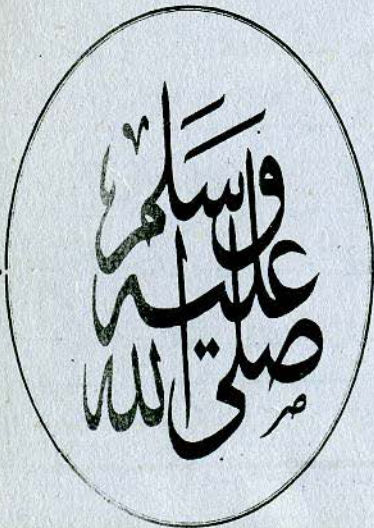 صلى الله
عليه
وسلم